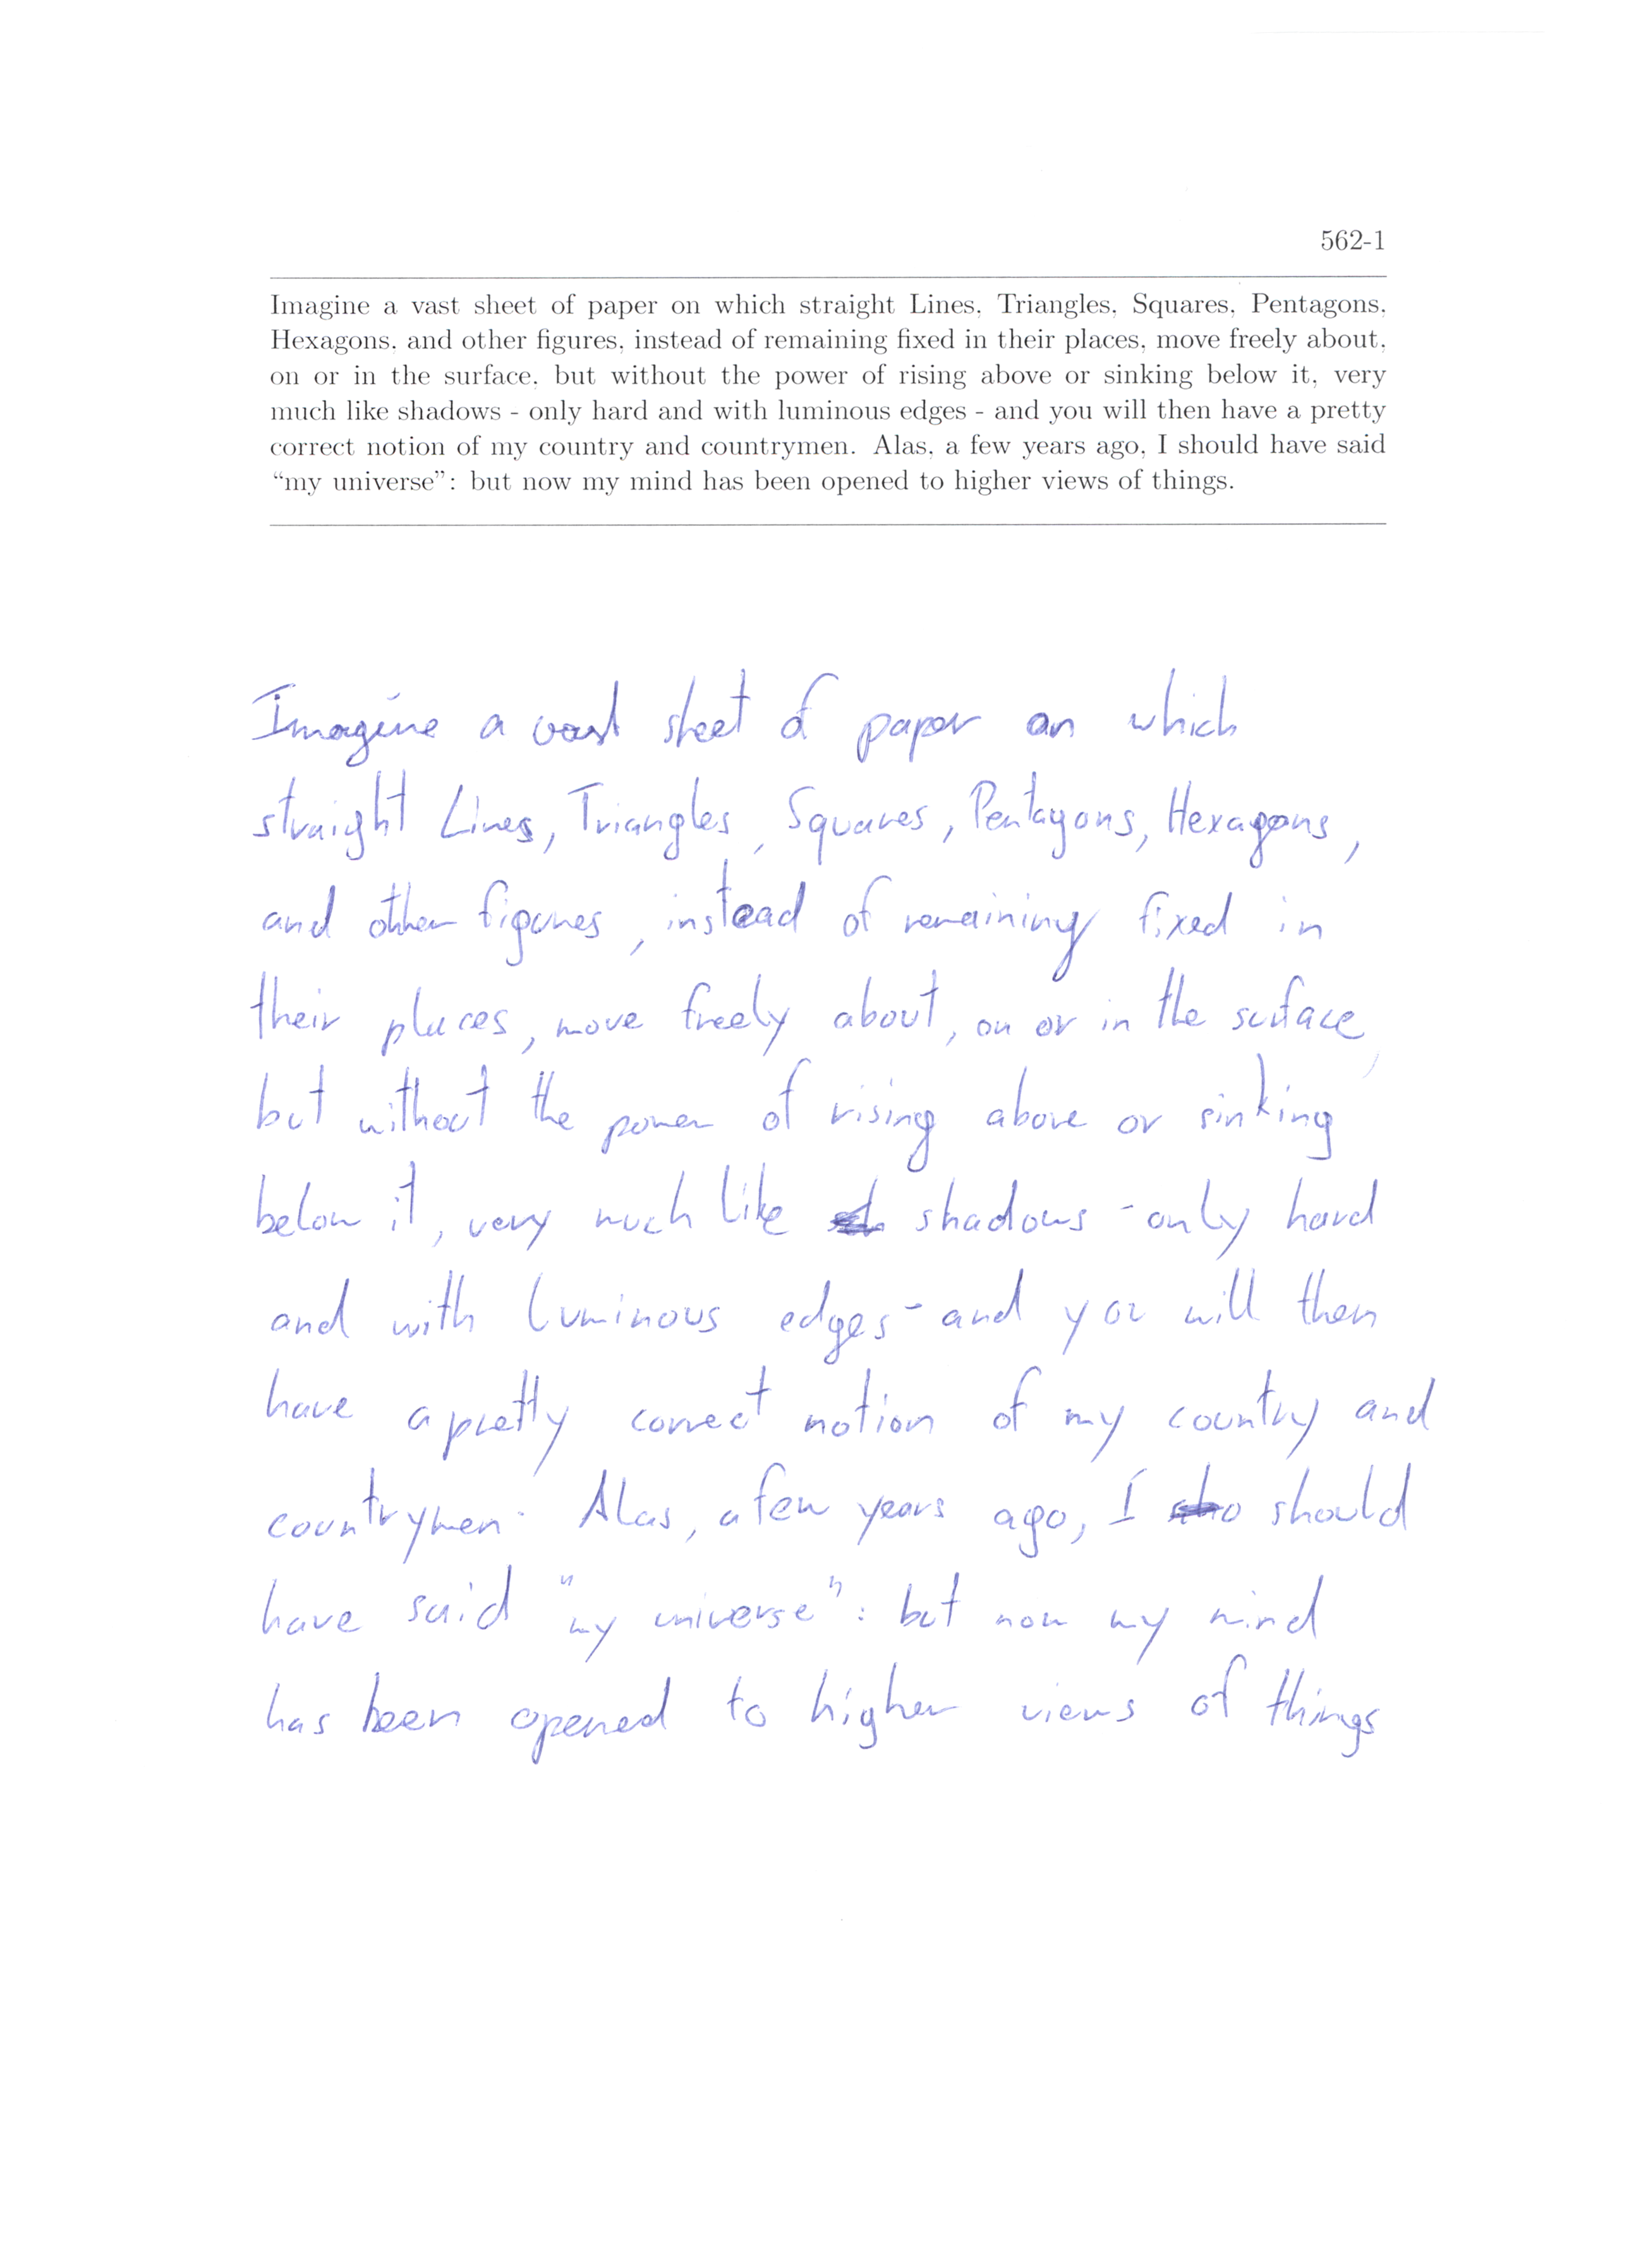 562-1
Imagine a vast sheet of paper on which straight Lines, Triangles, Squares, Pentagons,
Hexagons, and other figures, instead of remaining fixed in their places, move freely about,
on or in the surface, but without the power of rising above or sinking below it, very
much like shadows - only hard and with luminous edges - and you will then have a pretty
correct notion of my country and countrymen. Alas, a few years ago, I should have said
“my universe”: but now my mind has been opened to higher views of things.
Imagine a vast sheet of paper on which
straight Lines, Triangles, Squares, Pentagons, Hexagons,
and other figures, instead of remaining fixed in
their places, move freely about, on or in the surface,
but without the power of rising above or sinking
below it, very much like shadows - only hard
and with luminous edges - and you will then
have a pretty correct notion of my country and
countrymen. Alas, a few years ago, I should
have said "my universe": but now my mind
has been opened to higher views of things